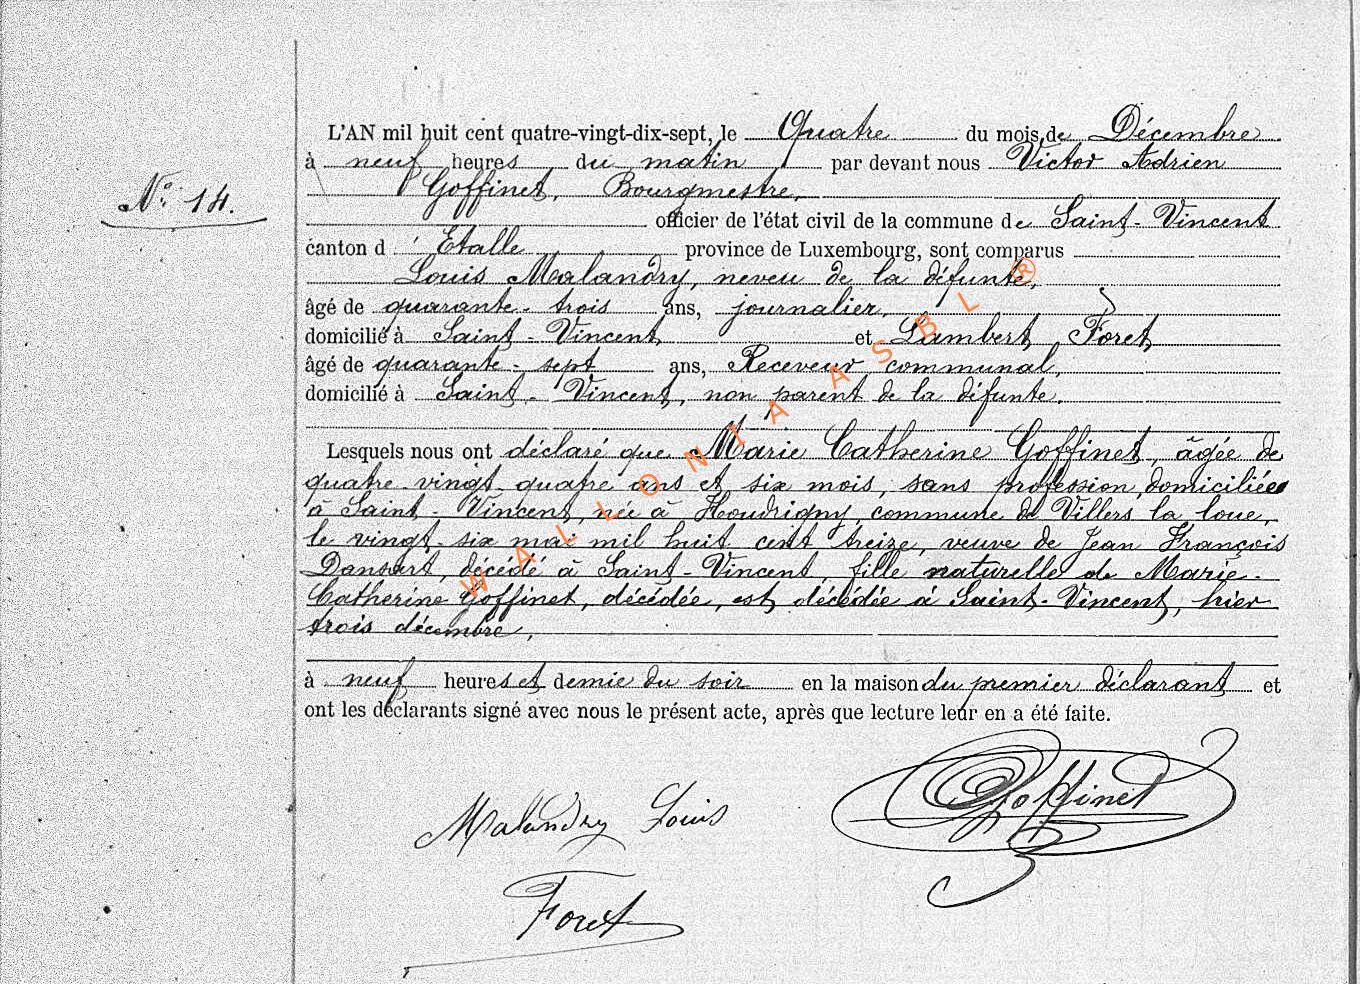 L'AN mil huit cent quatre-vingt-dix-sept, le Quatre du mois de Décembre
à neuf heures du matin par devant nous Victor Adrien
Nº 14.
Goffinet, Bourgmestre,
officier de l'état civil de la commune de Saint-Vincent
canton d'Etalle province de Luxembourg, sont comparus
Louis Malandry, neveu de la défunte,
âgé de quarante-trois ans, journalier,
domicilié à Saint-Vincent et Lambert Foret
âgé de quarante-sept ans, Receveur communal,
domicilié à Saint-Vincent, non parent de la défunte.
Lesquels nous ont déclaré que Marie Catherine Goffinet, âgée de
quatre-vingt-quatre ans et six mois, sans profession, domiciliée
à Saint-Vincent, née à Houdrigny, commune de Villers la loue,
le vingt-six mai mil huit cent treize, veuve de Jean François
Dansart, décédé à Saint-Vincent, fille naturelle de Marie-
Catherine Goffinet, décédée, est décédée à Saint-Vincent, hier
trois décembre,
à neuf heures et demie du soir en la maison du premier déclarant et
ont les déclarants signé avec nous le présent acte, après que lecture leur en a été faite.
Goffinet
Malandry Louis
Foret
WALLONIA ASBL ®